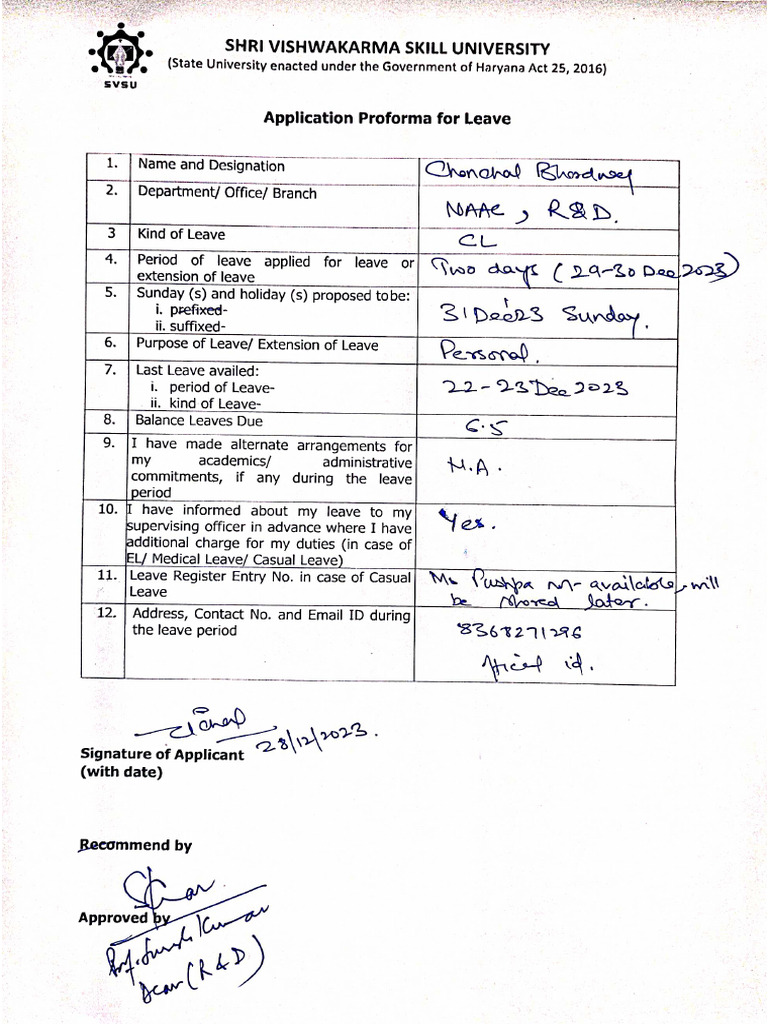 SHRI VISHWAKARMA SKILL UNIVERSITY
(State University enacted under the Government of Haryana Act 25, 2016)
SVSU
Application Proforma for Leave
1. Name and Designation Chanchal Bhardwaj
2. Department/ Office/ Branch NAAC, R&D.
3 Kind of Leave CL
4. Period of leave applied for leave or Two days (29-30 Dec 2023)
extension of leave
5. Sunday (s) and holiday (s) proposed tobe:
i. prefixed- 31 Dec'23 Sunday.
ii. suffixed-
6. Purpose of Leave/ Extension of Leave Personal.
7. Last Leave availed:
i. period of Leave- 22-23 Dec 2023
ii. kind of Leave-
8. Balance Leaves Due 6.5
9. I have made alternate arrangements for
my academics/ administrative N.A.
commitments, if any during the leave
period
10. I have informed about my leave to my
supervising officer in advance where I have Yes.
additional charge for my duties (in case of
EL/ Medical Leave/ Casual Leave)
11. Leave Register Entry No. in case of Casual Ms Pushpa available, will
Leave be shared later.
12. Address, Contact No. and Email ID during
the leave period 8368271296
official id.
28/12/2023.
Signature of Applicant
(with date)
Recommend by
Approved by
Prof. Suresh Kumar
Dean (R&D)